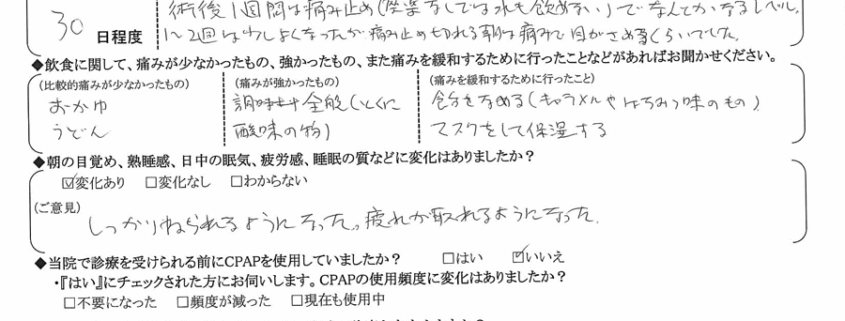 30 日程度
術後1週間は痛み止め(座薬なしでは水も飲めない)でなんとかなるレベル。
1~2週は少しよくなったが痛み止め切れる朝は痛みで目がさめるくらいでした。
◆飲食に関して、痛みが少なかったもの、強かったもの、また痛みを緩和するために行ったことなどがあればお聞かせください。
(比較的痛みが少なかったもの)
おかゆ
うどん
(痛みが強かったもの)
調味料全般(とくに
酸味の物)
(痛みを緩和するために行ったこと)
飴をなめる(キャラメルやはちみつ味のもの)
マスクをして保湿する
◆朝の目覚め、熟睡感、日中の眠気、疲労感、睡眠の質などに変化はありましたか?
☑変化あり □変化なし □わからない
(ご意見)
しっかりねられるようになった。疲れが取れるようになった。
◆当院で診療を受けられる前にCPAPを使用していましたか? □はい ☑いいえ
・『はい』にチェックされた方にお伺いします。CPAPの使用頻度に変化はありましたか?
□不要になった □頻度が減った □現在も使用中